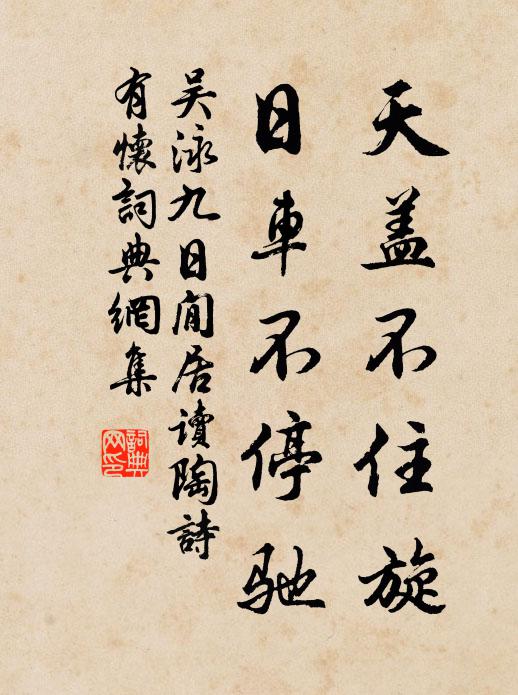 天盖不住旋
日車不停馳
吴泳九日闲居读陶詩
有懷詞典網集
詞典网印